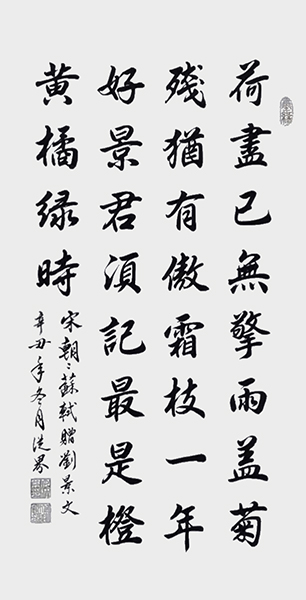 荷盡已無擎雨蓋菊
殘猶有傲霜枝一年
好景君須記最是橙
黄橘緑時
宋朝：蘇軾贈劉景文
辛丑年冬月